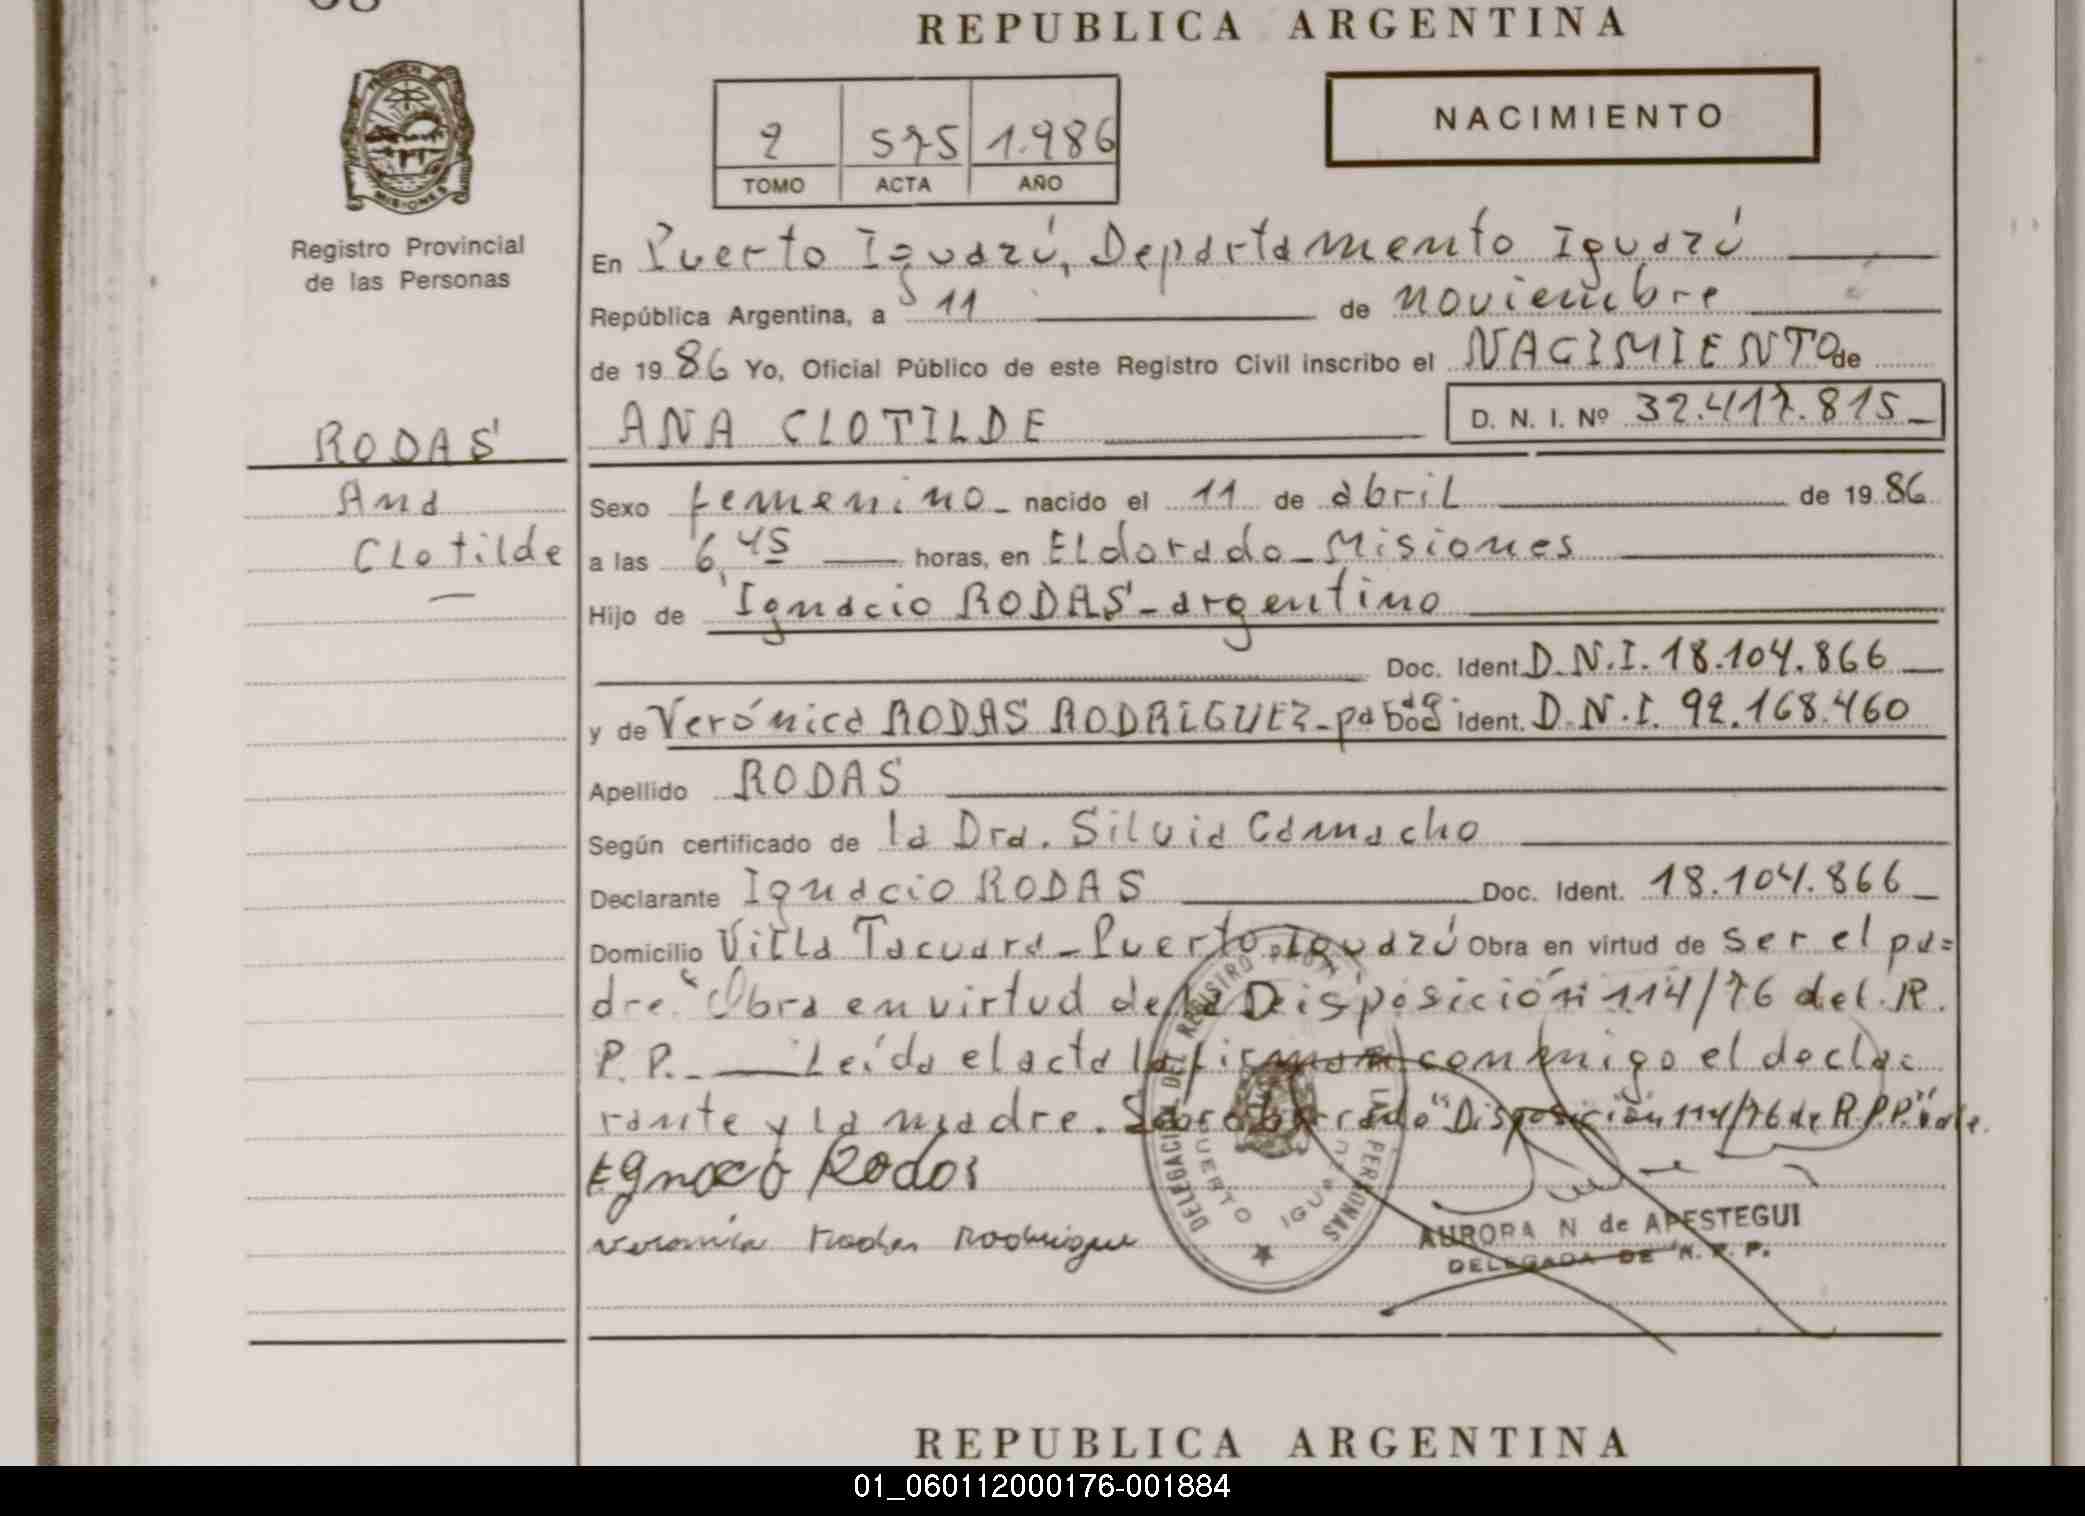 REPUBLICA ARGENTINA
2 575 1.986
TOMO ACTA AÑO
NACIMIENTO
MISIONES
Registro Provincial
de las Personas
En Puerto Iguazú, Departamento Iguazú
República Argentina, a 11 de noviembre
de 1986 Yo, Oficial Público de este Registro Civil inscribo el NACIMIENTO de
ANA CLOTILDE D. N. I. Nº 32.417.815
RODAS
Ana
Clotilde
Sexo femenino nacido el 11 de abril de 1986
a las 6,45 horas, en Eldorado - Misiones
Hijo de Ignacio RODAS - argentino
Doc. Ident. D.N.I. 18.104.866
y de Verónica RODAS RODRIGUEZ - Doc. Ident. D.N.I. 92.168.460
Apellido RODAS
Según certificado de la Dra. Silvia Camacho
Declarante Ignacio RODAS Doc. Ident. 18.104.866
Domicilio Villa Tacuara - Puerto Iguazú Obra en virtud de ser el pa=
dre. "Obra en virtud de la Disposición 114/76 del R.
P.P. Leída el acta la firman conmigo el decla=
rante y la madre. Sobreborrado "Disposición 114/76 de R.P.P." vale.
Ignacio Rodas
Veronica Rodas Rodrigue
DELEGACION DEL REGISTRO PROV. DE LAS PERSONAS
PUERTO IGUAZU
AURORA N de APESTEGUI
DELEGADA DE R. P. P.
REPUBLICA ARGENTINA
01_060112000176-001884